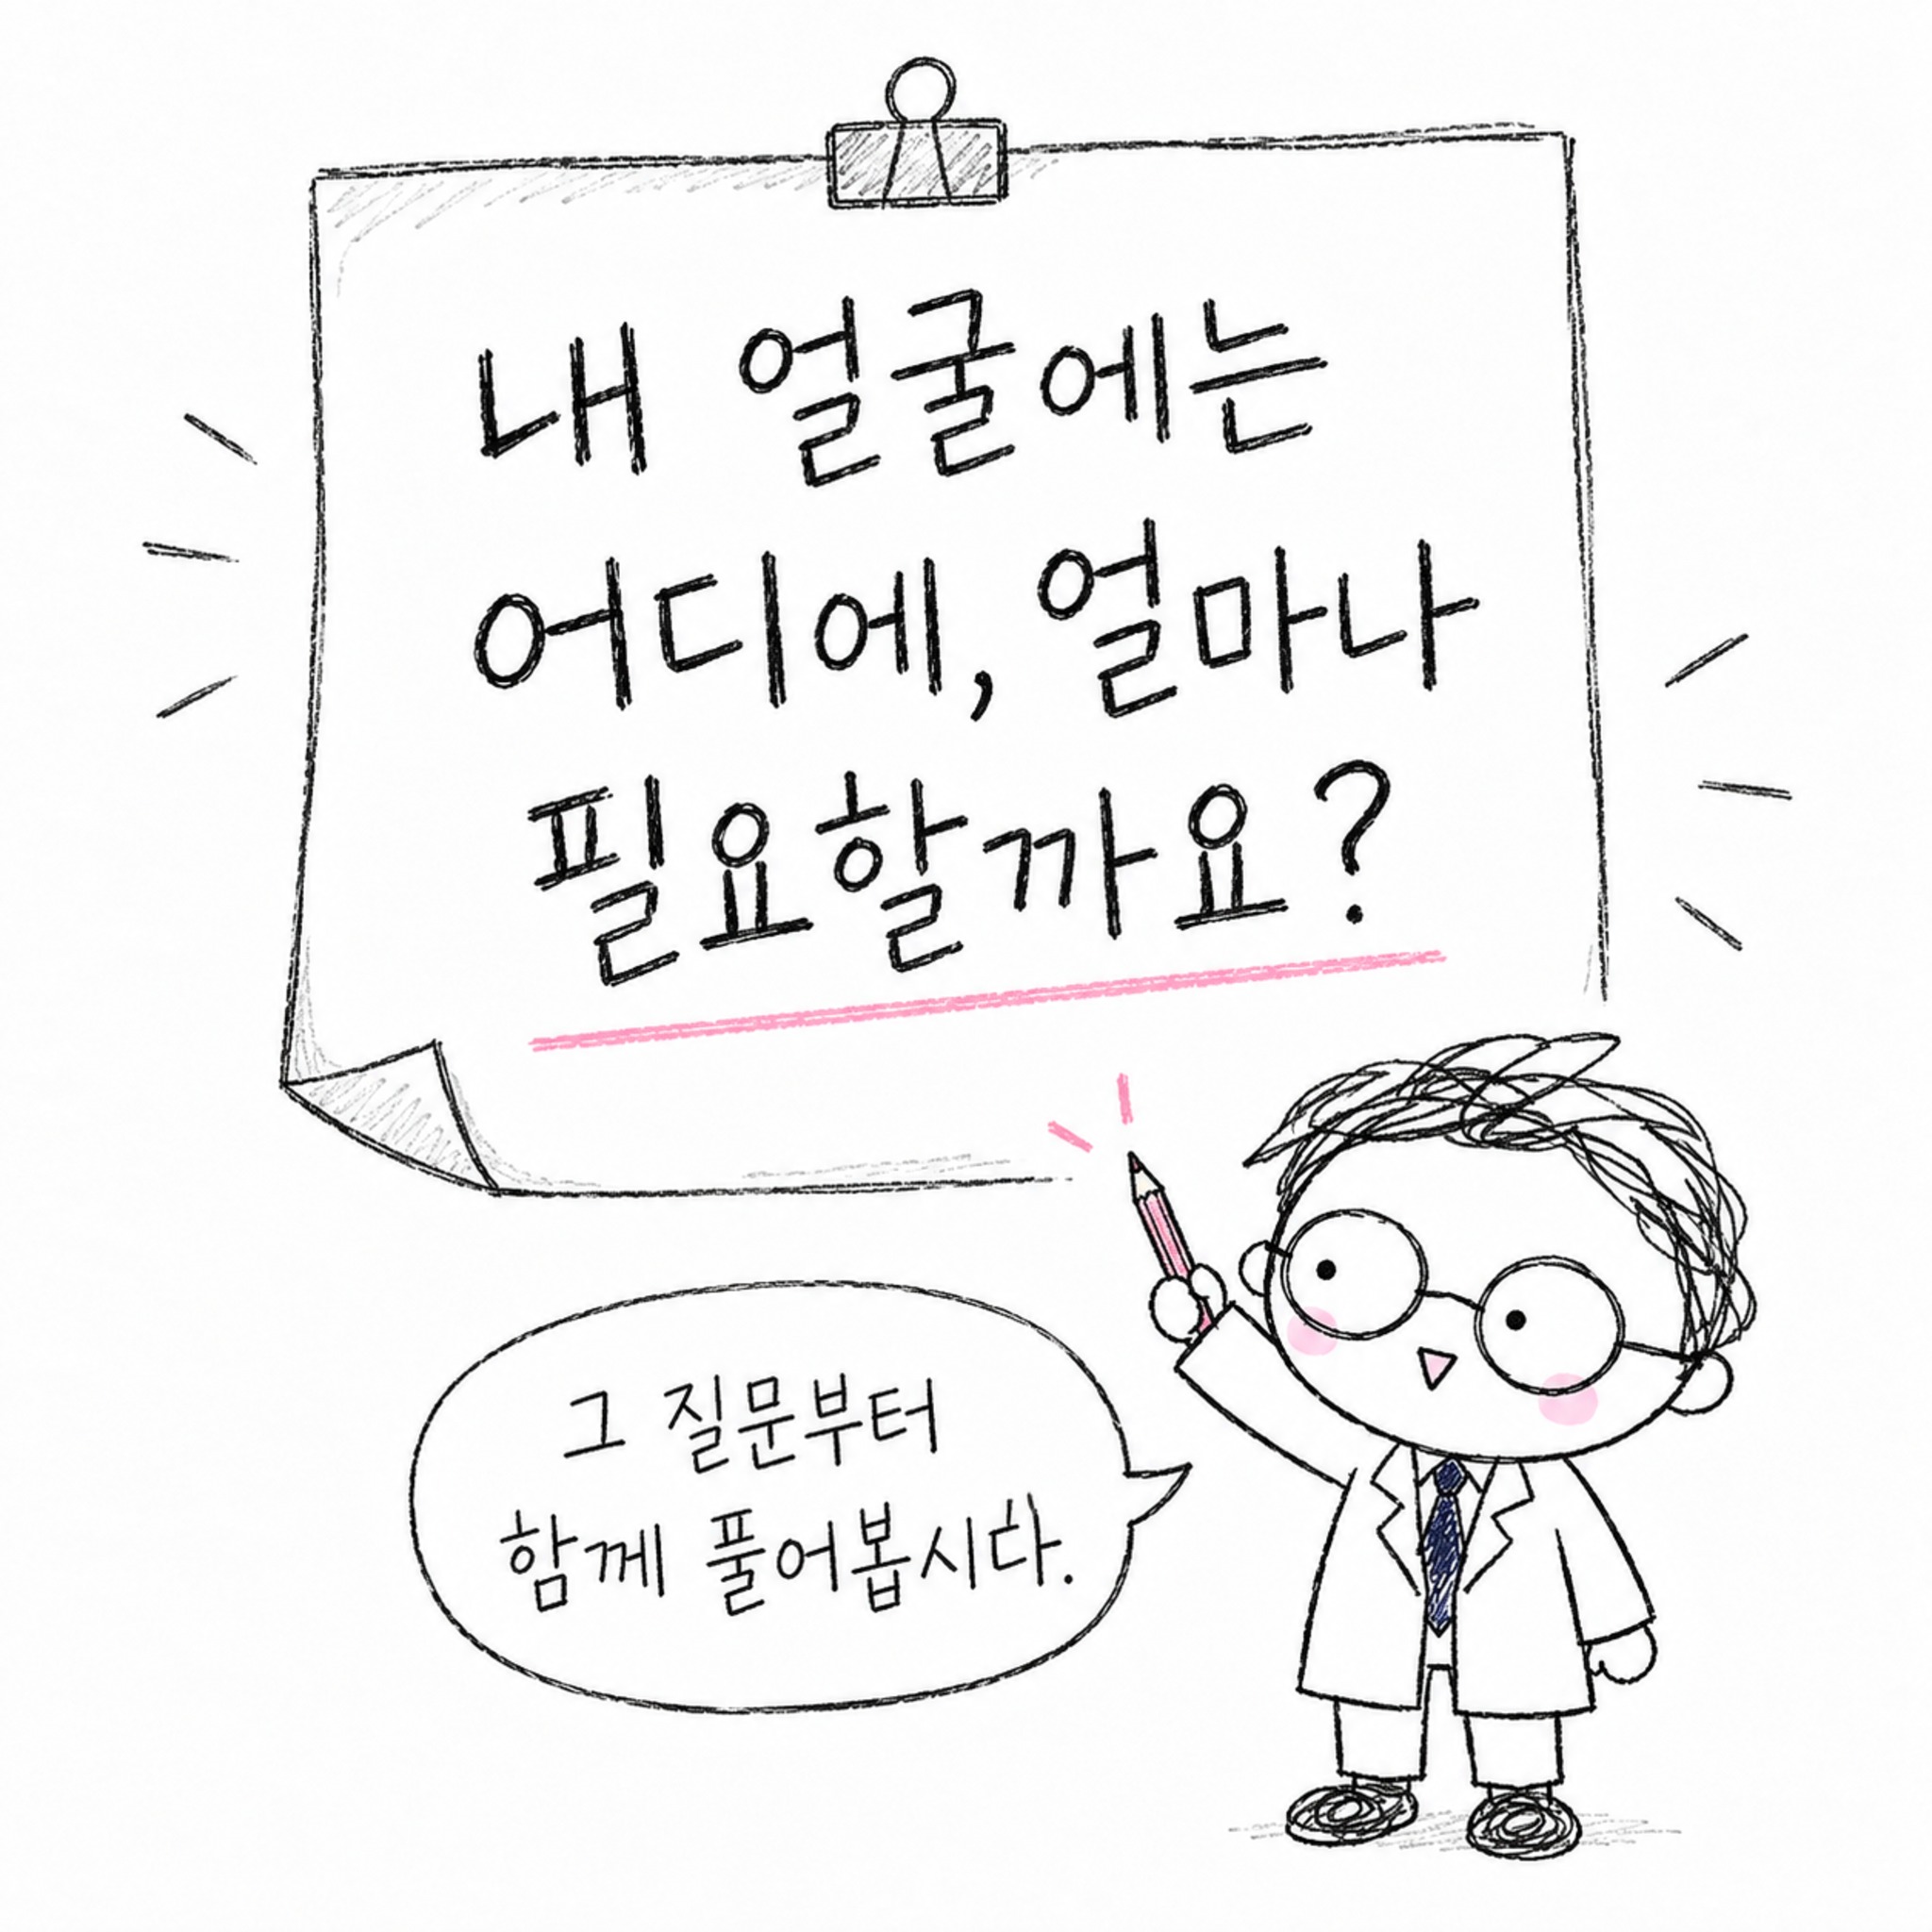 내 얼굴에는
어디에, 얼마나
필요할까요?
그 질문부터
함께 풀어봅시다.